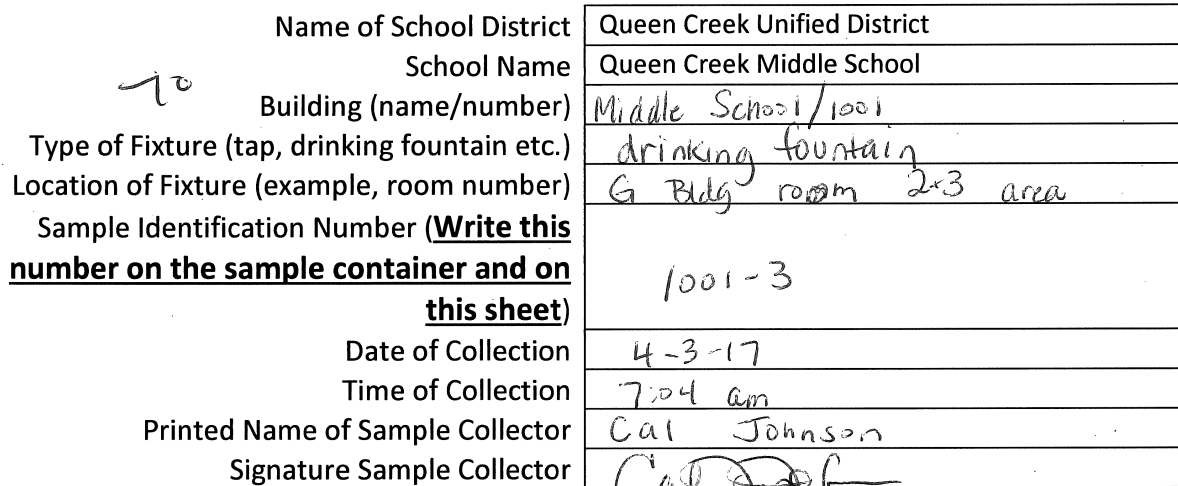 Name of School District Queen Creek Unified District
School Name Queen Creek Middle School
Building (name/number) Middle School/1001
Type of Fixture (tap, drinking fountain etc.) drinking fountain
Location of Fixture (example, room number) G Bldg room 2+3 area
Sample Identification Number (Write this
number on the sample container and on
this sheet) 1001-3
Date of Collection 4-3-17
Time of Collection 7:04 am
Printed Name of Sample Collector Cal Johnson
Signature Sample Collector